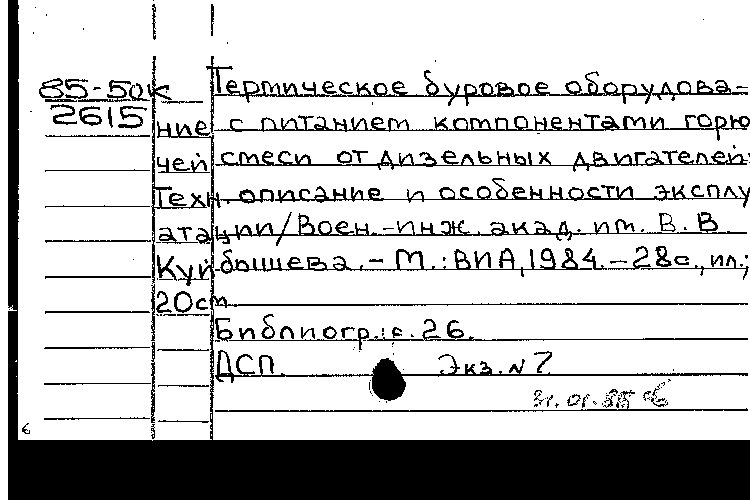 85-50к Термическое буровое оборудова-
2615 ние с питанием компонентами горю
чей смеси от дизельных двигателей:
Техн. описание и особенности эксплу
атации/Воен.-инж. акад. им. В. В
Куйбышева. - М.: ВИА, 1984. - 28с., ил.;
20см.
Библиогр.: с. 26.
ДСП. Экз. № 7
31.01.85
6